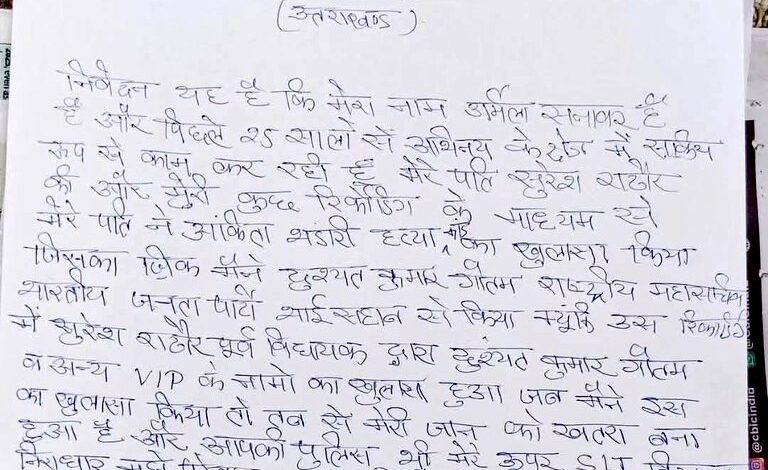 (उत्तराखण्ड)
निवेदन यह है कि मेरा नाम उर्मिला सनावर है
है और पिछले 25 सालों से अभिनय के क्षेत्र में सक्रिय
रूप से काम कर रही हूँ मेरे पति सुरेश राठौर
की और मेरी कुछ रिकॉर्डिंग के माध्यम से
मेरे पति ने अंकिता भंडारी हत्या कांड का खुलासा किया
जिसका जिक्र मैंने दुष्यंत कुमार गौतम राष्ट्रीय महासचिव
भारतीय जनता पार्टी भाई सहाब से किया क्यूंकि उस रिकॉर्डिंग
में सुरेश राठौर पूर्व विधायक द्वारा दुष्यंत कुमार गौतम
व अन्य VIP के नामो का खुलासा हुआ जब मैंने इस
का खुलासा किया तो तब से मेरी जान को खतरा बना
हुआ है और आपकी पुलिस भी मेरे ऊपर SIT
निराधार
@cbicindia